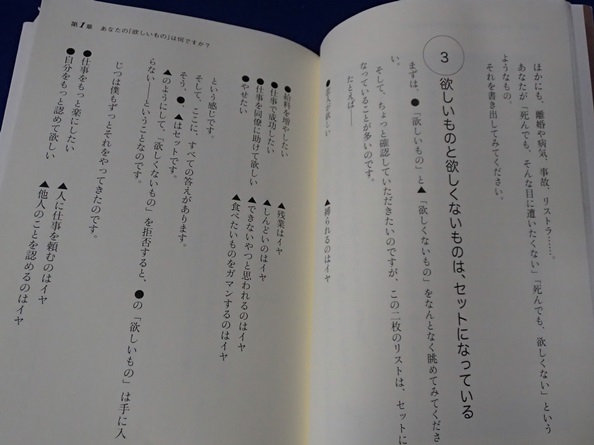 ほかにも、離婚や病気、事故、リストラ……。
あなたが「死んでも、そんな目に遭いたくない」「死んでも、欲しくない」という
ようなもの。
それを書き出してみてください。
3 欲しいものと欲しくないものは、セットになっている
まずは、●「欲しいもの」と▲「欲しくないもの」をなんとなく眺めてみてくださ
い。
そして、ちょっと確認していただきたいのですが、この二枚のリストは、セットに
なっていることが多いのです。
たとえば——
●恋人が欲しい ▲縛られるのはイヤ
第1章 あなたの「欲しいもの」は何ですか？
●給料を増やしたい ▲残業はイヤ
●仕事で成功したい ▲しんどいのはイヤ
●仕事を同僚に助けて欲しい ▲できないやつと思われるのはイヤ
●やせたい ▲食べたいものをガマンするのはイヤ
という感じです。
そして、ここに、すべての答えがあります。
そう、●、▲はセットです。
▲のようにして、「欲しくないもの」を拒否すると、●の「欲しいもの」は手に入
らない——ということなのです。
じつは僕もずっとそれをやってきたのです。
●仕事をもっと楽にしたい ▲人に仕事を頼むのはイヤ
●自分をもっと認めて欲しい ▲他人のことを認めるのはイヤ